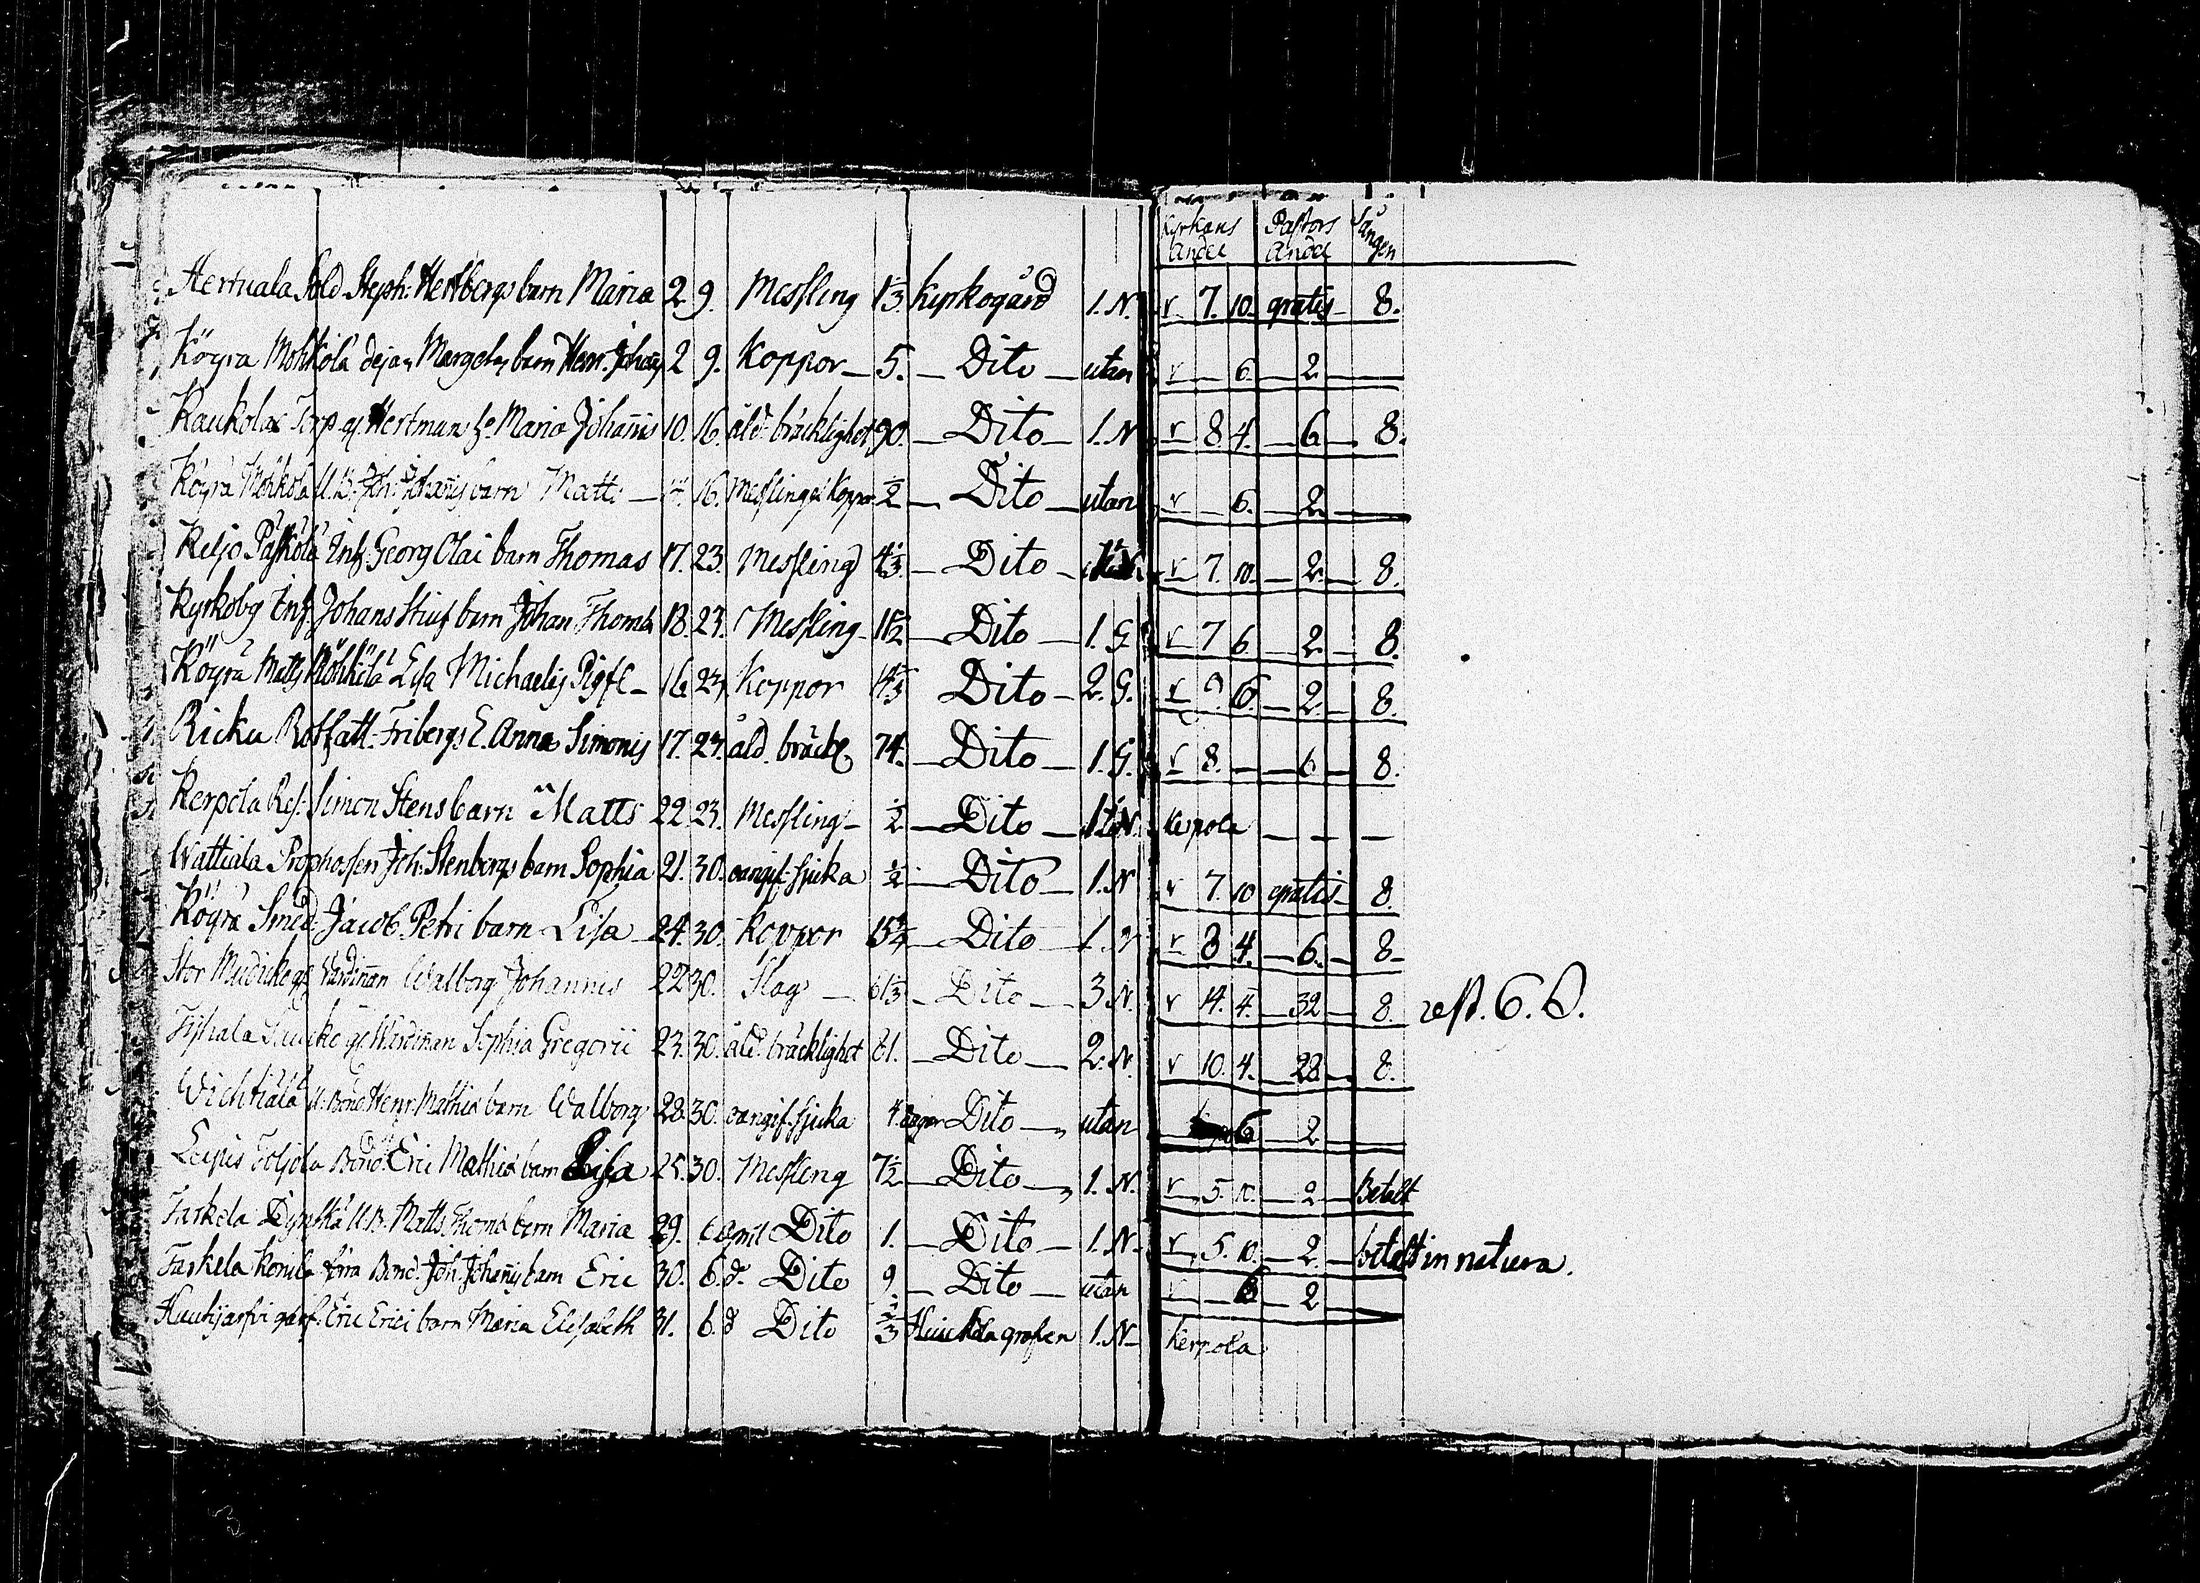 Kyrkans Andel Pastors Andel Sången
Hertuala Sold Steph: Hertbergs barn Maria 2 9. Messling 1⅓ Kyrkogård 1. N. r 7. 10. gratis 8.
Köyra Mohköla dejan barn Henr. Johan 2 9. Koppor 5. Dito utan r 6. 2
Raukola Torp Hertman Maria Johannis 10. 16. åld. bräcklighet 90. Dito 1. N r 8 4. 6 8.
Köyrä Möhkölä U.B. Joh: Johannis barn Matts 16. Messling o Koppor ½ Dito utan r 6. 2
Keljo Päjkölä Inh. Georg Olai barn Thomas 17. 23. Messling 4⅓ Dito r 7. 10. 2. 8.
Kyrkoby Inh. Johans Stiuf barn Johan Thomæ 18. 23. Messling 1½ Dito 1. G r 7 6 2 8.
Köyrä Matts Möhkölä Lisa Michaelis Pige 16 23 Koppor Dito 2. G. r 9. 6. 2. 8.
Ricku Rotfatt. Fribergs E. Anna Simonis 17. 23. åld. bräckl. 74. Dito 1. G. r 8. 6 8.
Kerpola Ref. Simon Stens barn Matts 22. 23. Messling ½ Dito 1 N. Kerpola
Wattiala Prophossen Joh: Stenbergs barn Sophia 21. 30. oangif. sjuka ½ Dito 1. N r 7. 10 gratis 8.
Köyrä Smed. Jacob Petri barn Lisa 24. 30. Koppor Dito 1. N r 8 4. 6. 8
Stor Walborg Johannis 22 30. Slag 61⅓ Dito 3 N. r 14. 4. 32 8. rest. 6. 6.
Sophia Gregorii 23. 30. åld. bräcklighet 81. Dito 2. N. r 10. 4. 28 8.
Wichtiälä U. Bond Henr. Mathiæ barn Walborg 28. 30. oangif. sjuka 4 dagar Dito utan 6 2
Lepis Toljola Bond. Eric Mathiæ barn Lisa 25. 30. Messling 7½ Dito 1. N. r 5. 10. 2 Betalt
Taskela U.B. Matts Thomæ barn Maria 29. 6 April Dito 1. Dito 1. N. r 5. 10. 2. betalt in natura.
Taskela Bond. Joh. Johannis barn Eric 30. 6. d. Dito 9. Dito utan r 6 2
Hauhijarfvi Eric Erici barn Maria Elisabeth 31. 6. d Dito ⅔ grafven 1. N. Kerpola